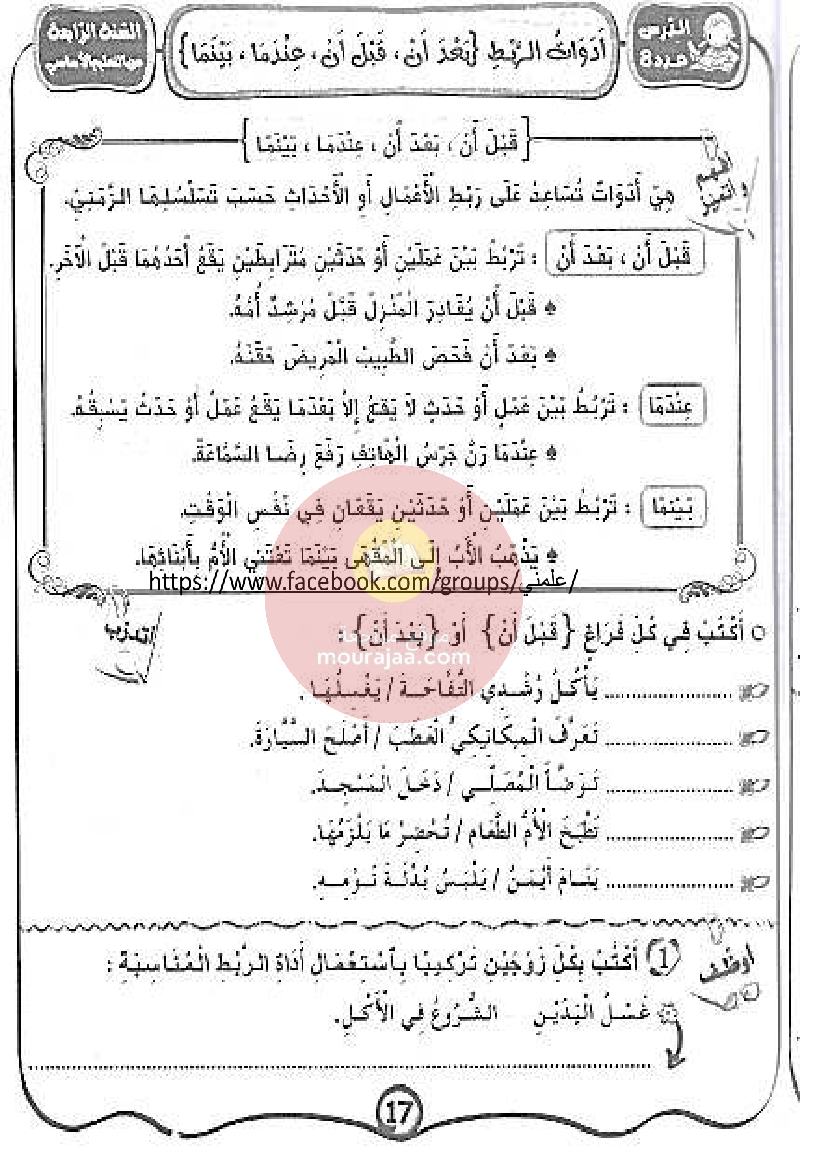 الدرس عدد 8
أَدَوَاتُ الرَّبْطِ {بَعْدَ أَنْ، قَبْلَ أَنْ، عِنْدَمَا، بَيْنَمَا}
السّنة الرّابعة
من التعليم الأساسي
{قَبْلَ أَنْ، بَعْدَ أَنْ، عِنْدَمَا، بَيْنَمَا}
أفهم وأتميّز
هِيَ أَدَوَاتٌ تُسَاعِدُ عَلَى رَبْطِ الْأَعْمَالِ أَوِ الْأَحْدَاثِ حَسَبَ تَسَلْسُلِهَا الزَّمَنِيِّ.
قَبْلَ أَنْ، بَعْدَ أَنْ : تَرْبُطُ بَيْنَ عَمَلَيْنِ أَوْ حَدَثَيْنِ مُتَرَابِطَيْنِ يَقَعُ أَحَدُهُمَا قَبْلَ الْآخَرِ.
♠ قَبْلَ أَنْ يُغَادِرَ الْمَنْزِلَ قَبَّلَ مُرْشِدٌ أُمَّهُ.
♠ بَعْدَ أَنْ فَحَصَ الطَّبِيبُ الْمَرِيضَ حَقَنَهُ.
عِنْدَمَا : تَرْبُطُ بَيْنَ عَمَلٍ أَوْ حَدَثٍ لاَ يَقَعُ إِلاَّ بَعْدَمَا يَقَعُ عَمَلٌ أَوْ حَدَثٌ يَسْبِقُهُ.
♠ عِنْدَمَا رَنَّ جَرَسُ الْهَاتِفِ رَفَعَ رِضَا السَّمَّاعَةَ.
بَيْنَمَا : تَرْبُطُ بَيْنَ عَمَلَيْنِ أَوْ حَدَثَيْنِ يَقَعَانِ فِي نَفْسِ الْوَقْتِ.
♠ يَذْهَبُ الْأَبُ إِلَى الْمَقْهَى بَيْنَمَا تَعْتَنِي الْأُمُّ بِأَبْنَائِهَا.
https://www.facebook.com/groups/علمني/
أتدرّب
○ أَكْتُبُ فِي كُلِّ فَرَاغٍ {قَبْلَ أَنْ} أَوْ {بَعْدَ أَنْ} :
موقع مراجعة
mourajaa.com
.................... يَأْكُلُ رُشْدِي التُّفَّاحَةَ / يَغْسِلُهَا.
.................... تَعَرَّفَ الْمِيكَانِيكِيُّ الْعَطَبَ / أَصْلَحَ السَّيَّارَةَ.
.................... تَوَضَّأَ الْمُصَلِّي / دَخَلَ الْمَسْجِدَ.
.................... تَطْبُخَ الْأُمُّ الطَّعَام / تُحْضِرُ مَا يَلْزَمُهَا.
.................... يَنَامَ أَيْمَنُ / يَلْبَسُ بُدْلَةَ نَوْمِهِ.
أوظّف
(1) أَكْتُبُ بِكُلِّ زَوْجَيْنِ تَرْكِيبًا بِاسْتِعْمَالِ أَدَاةِ الرَّبْطِ الْمُنَاسِبَةِ :
غَسْلُ الْيَدَيْنِ الشُّرُوعُ فِي الْأَكْلِ.
....................
17